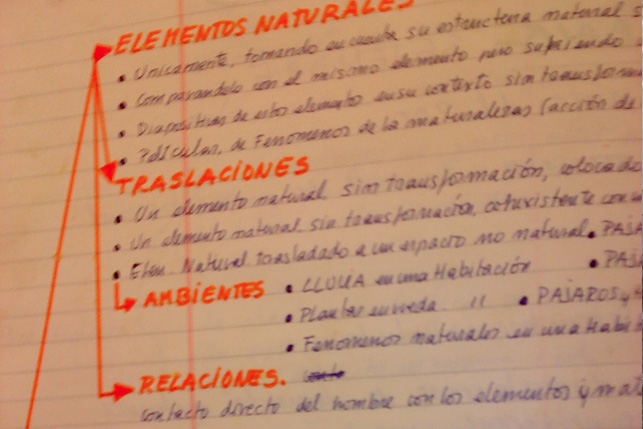 ELEMENTOS NATURALES
• Unicamente, tomando en cuenta su estructura natural
• Comparandolo con el mismo elemento pero sufriendo
• Diapositivas de estos elementos en su contexto sin transform
• Peliculas, de Fenomenos de la naturalezas (acción de
TRASLACIONES
• Un elemento natural, sin transformación, colocado
• Un elemento natural sin transformación, cohexistente con
• Elem. Natural trasladado a un espacio no natural. • PAJA
AMBIENTES • LLUVIA en una Habitación • PAJ
• Plantas en 11 • PAJAROS y
• Fenomenos naturales en una Habi
RELACIONES.
contacto directo del hombre con los elementos y mat